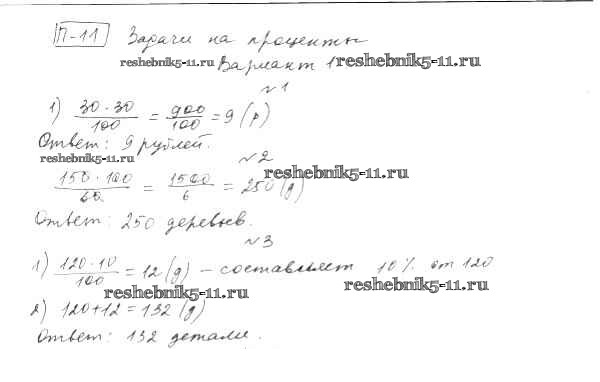 П-11 Задачи на проценты
reshebnik5-11.ru Вариант 1 reshebnik5-11.ru
№1
1) 30·30/100 = 900/100 = 9 (р)
Ответ: 9 рублей.
reshebnik5-11.ru №2
reshebnik5-11.ru
150·100/60 = 1500/6 = 250 (д)
Ответ: 250 деревьев.
№3
1) 120·10/100 = 12 (д) – составляет 10% от 120
reshebnik5-11.ru reshebnik5-11.ru
2) 120+12=132 (д)
Ответ: 132 детали.